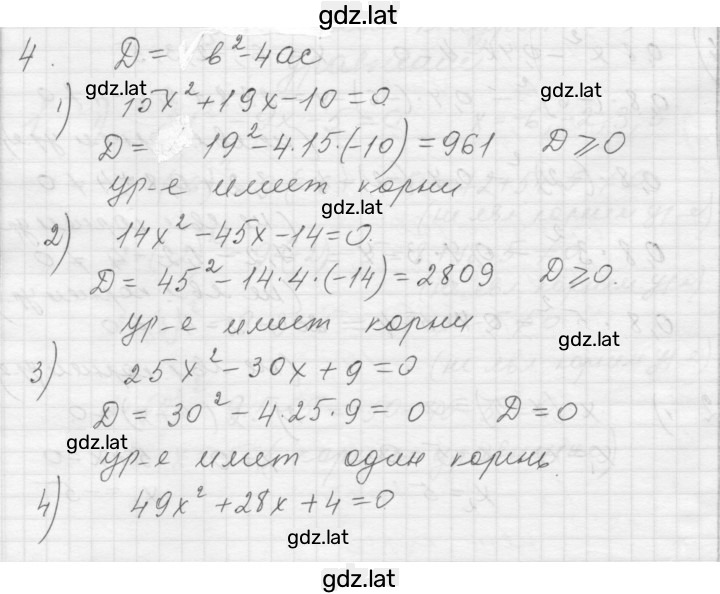 gdz.lat
4. D = b² - 4ac
gdz.lat
1) 15x² + 19x - 10 = 0
gdz.lat
D = 19² - 4·15·(-10) = 961 D ⩾ 0
ур-е имеет корни
gdz.lat
2) 14x² - 45x - 14 = 0.
D = 45² - 14·4·(-14) = 2809 D ⩾ 0.
ур-е имеет корни
gdz.lat
3) 25x² - 30x + 9 = 0
D = 30² - 4·25·9 = 0 D = 0
gdz.lat
ур-е имеет один корень.
4) 49x² + 28x + 4 = 0
gdz.lat
gdz.lat